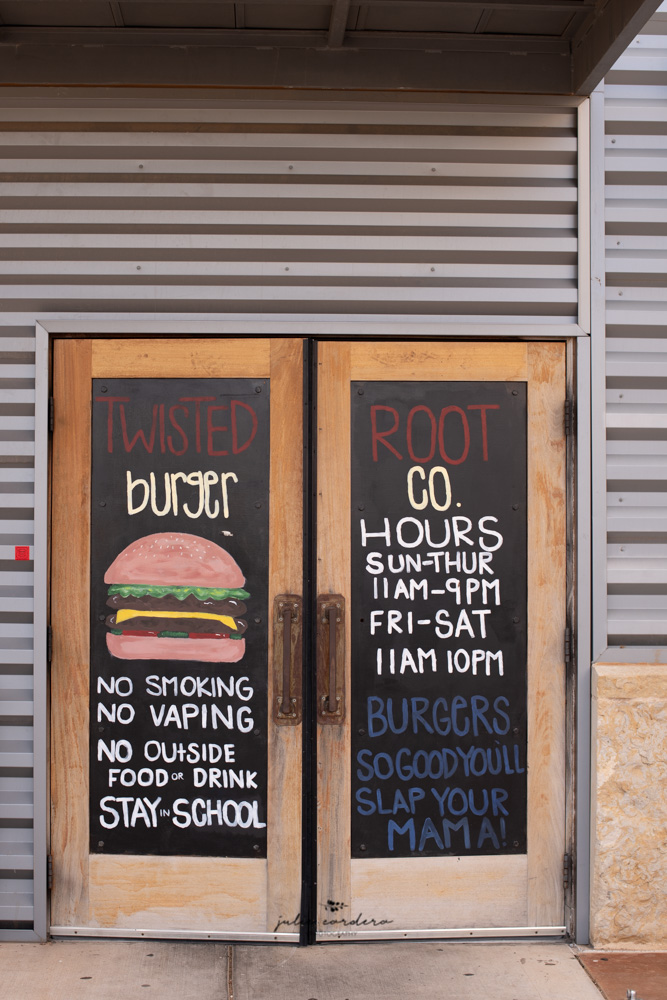 TWISTED
burger
NO SMOKING
NO VAPING
NO OUtSIDE
FOOD OR DRINK
STAY IN SCHOOL
ROOT
CO.
HOURS
SUN-THUR
11AM-9PM
FRI-SAT
11AM 10PM
BURGERS
SO GOOD YOU'LL
SLAP YOUR
MAMA!
julia cordero
PHOTOGRAPHY